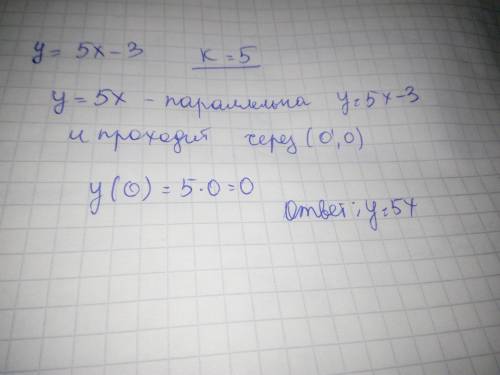 y = 5x - 3 k = 5
y = 5x - параллельна y = 5x - 3
и проходит через (0,0)
y(0) = 5·0 = 0
Ответ: y = 5x